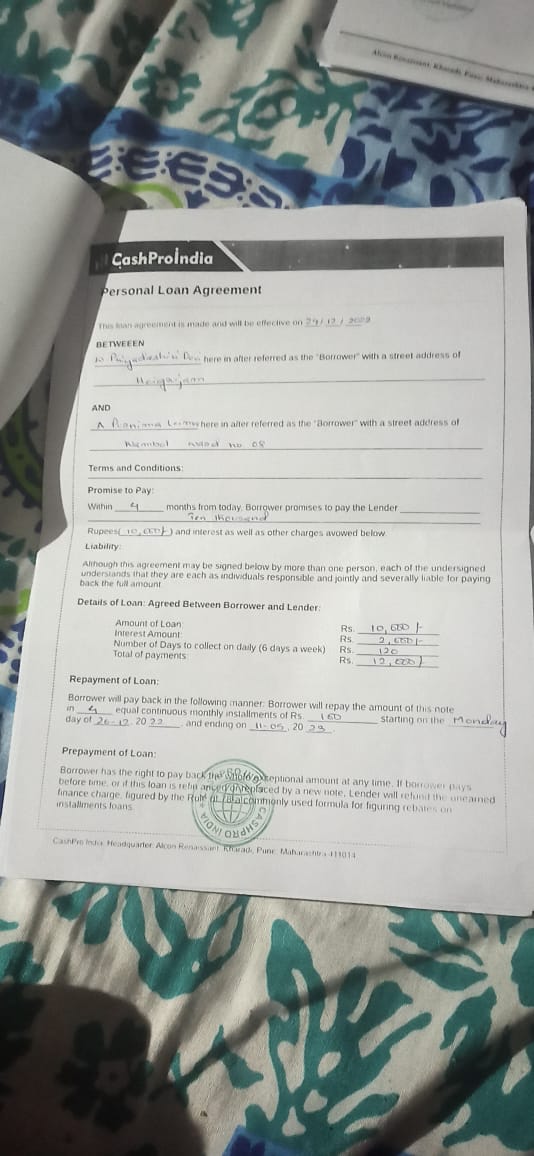 Alcon Renaissant, Kharadi, Pune, Maharashtra
CashProIndia
Personal Loan Agreement
This loan agreement is made and will be effective on 24/12/2022
BETWEEEN
here in after referred as the "Borrower" with a street address of
AND
here in after referred as the "Borrower" with a street address of
Nambol ward no 08
Terms and Conditions:
Promise to Pay:
Within 4 months from today, Borrower promises to pay the Lender
Ten thousand
Rupees( 10,000/- ) and interest as well as other charges avowed below
Liability:
Although this agreement may be signed below by more than one person, each of the undersigned
understands that they are each as individuals responsible and jointly and severally liable for paying
back the full amount
Details of Loan: Agreed Between Borrower and Lender:
Amount of Loan: Rs. 10,000/-
Interest Amount: Rs. 2,000/-
Number of Days to collect on daily (6 days a week) Rs. 120
Total of payments: Rs. 12,000/-
Repayment of Loan:
Borrower will pay back in the following manner: Borrower will repay the amount of this note
in 4 equal continuous monthly installments of Rs. 100 starting on the Monday
day of 26-12, 2022, and ending on 11-05, 2023.
Prepayment of Loan:
Borrower has the right to pay back the whole exceptional amount at any time. If borrower pays
before time, or if this loan is refinanced or replaced by a new note, Lender will refund the unearned
finance charge, figured by the Rule of 78 a commonly used formula for figuring rebates on
installments loans.
CASHPRO INDIA
CashPro India. Headquarter: Alcon Renaissant, Kharadi, Pune, Maharashtra-411014